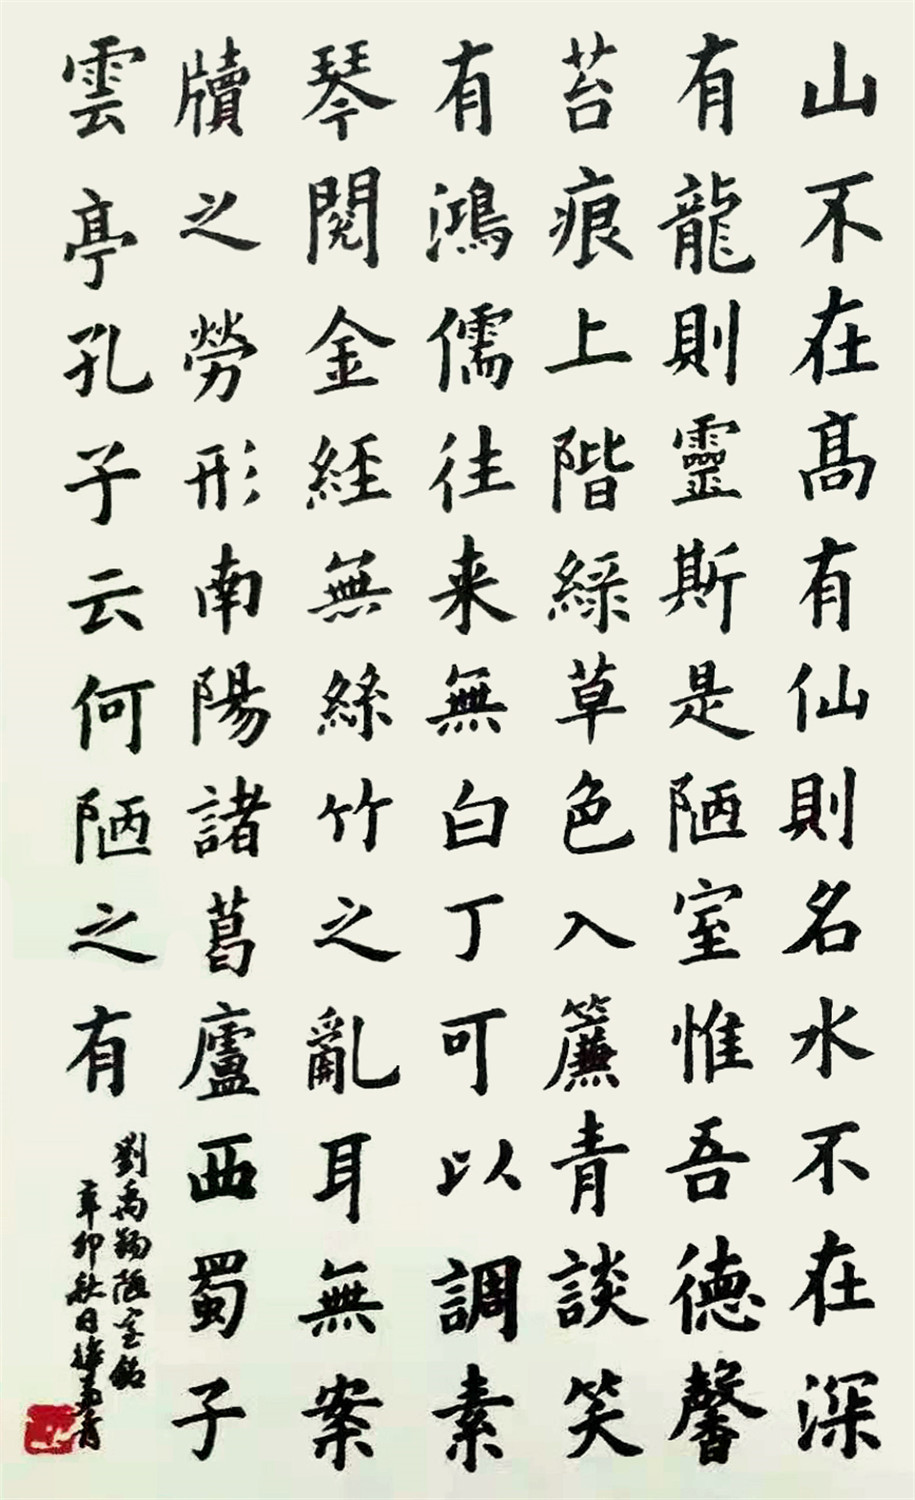 山不在髙有仙則名水不在深
有龍則靈斯是陋室惟吾德馨
苔痕上階綠草色入簾青談笑
有鴻儒往来無白丁可以調素
琴閱金經無絲竹之亂耳無案
牘之勞形南陽諸葛廬西蜀子
雲亭孔子云何陋之有
劉禹錫陋室銘
辛卯秋日